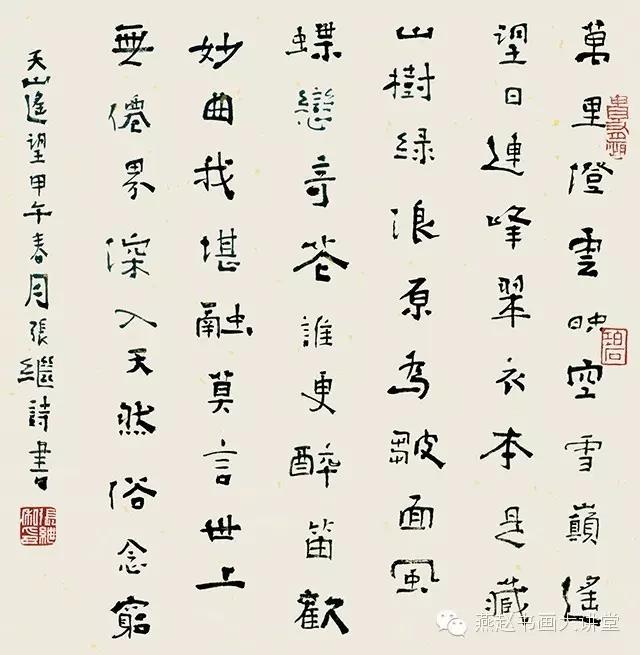 萬里澄雲映空雪巔遙
望日連峰翠衣本是藏
山樹緑浪原為皺面風
蝶戀奇花誰更醉笛歡
妙曲我堪融莫言世上
無僊界深入天然俗念窮
天山遙望甲午春月張繼詩書
燕赵书画大讲堂